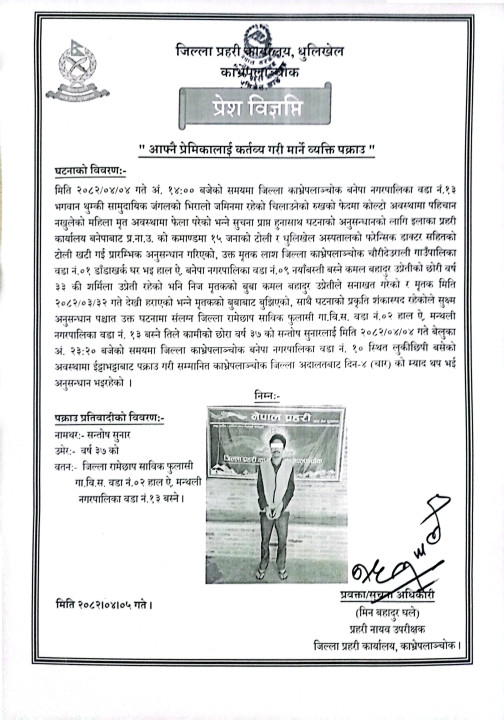 जिल्ला प्रहरी कार्यालय, धुलिखेल
काभ्रेपलाञ्चोक
प्रेश विज्ञप्ति
" आफ्नै प्रेमिकालाई कर्तव्य गरी मार्ने व्यक्ति पक्राउ "
घटनाको विवरण:-
मिति २०८२/०४/०४ गते अं. १४:०० बजेको समयमा जिल्ला काभ्रेपलाञ्चोक बनेपा नगरपालिका वडा नं.१३
भगवान थुम्की सामुदायिक जंगलको भिरालो जमिनमा रहेको चिलाउनेको रुखको फेदमा कोल्टो अवस्थामा पहिचान
नखुलेको महिला मृत अवस्थामा फेला परेको भन्ने सुचना प्राप्त हुनासाथ घटनाको अनुसन्धानको लागि इलाका प्रहरी
कार्यालय बनेपाबाट प्र.ना.उ. को कमाण्डमा १५ जनाको टोली र धुलिखेल अस्पतालको फरेन्सिक डाक्टर सहितको
टोली खटी गई प्रारम्भिक अनुसन्धान गरिएको, उक्त मृतक लाश जिल्ला काभ्रेपलाञ्चोक चौरीदेउराली गाउँपालिका
वडा नं.०१ डाँडाखर्क घर भइ हाल ऐ, बनेपा नगरपालिका वडा नं.०९ नयाँबस्ती बस्ने कमल बहादुर उप्रेतीको छोरी वर्ष
३३ की शर्मिला उप्रेती रहेको भनि निज मृतकको बुबा कमल बहादुर उप्रेतीले सनाखत गरेको र मृतक मिति
२०८२/०३/३२ गते देखी हराएको भन्ने मृतकको बुबाबाट बुझिएको, साथै घटनाको प्रकृति शंकास्पद रहेकोले सुक्ष्म
अनुसन्धान पश्चात उक्त घटनामा संलग्न जिल्ला रामेछाप साविक फुलासी गा.बि.स. वडा नं.०२ हाल ऐ, मन्थली
नगरपालिका वडा नं. १३ बस्ने तिले कामीको छोरा वर्ष ३७ को सन्तोष सुनारलाई मिति २०८२/०४/०४ गते बेलुका
अं. २३:२० बजेको समयमा जिल्ला काभ्रेपलाञ्चोक बनेपा नगरपालिका वडा नं. १० स्थित लुकीछिपी बसेको
अवस्थामा ईट्टाभट्टाबाट पक्राउ गरी सम्मानित काभ्रेपलाञ्चोक जिल्ला अदालतबाट दिन-४ (चार) को म्याद थप भई
अनुसन्धान भइरहेको ।
निम्न:-
पक्राउ प्रतिवादीको विवरण:-
नामथर:- सन्तोष सुनार
उमेर:- वर्ष ३७ को
वतन:- जिल्ला रामेछाप साविक फुलासी
गा.बि.स. वडा नं.०२ हाल ऐ, मन्थली
नगरपालिका वडा नं.१३ बस्ने ।
नेपाल प्रहरी
मिति २०८२।०४।०५ गते ।
प्रवक्ता/सूचना अधिकारी
(मिन बहादुर घले)
प्रहरी नायव उपरीक्षक
जिल्ला प्रहरी कार्यालय, काभ्रेपलाञ्चोक ।